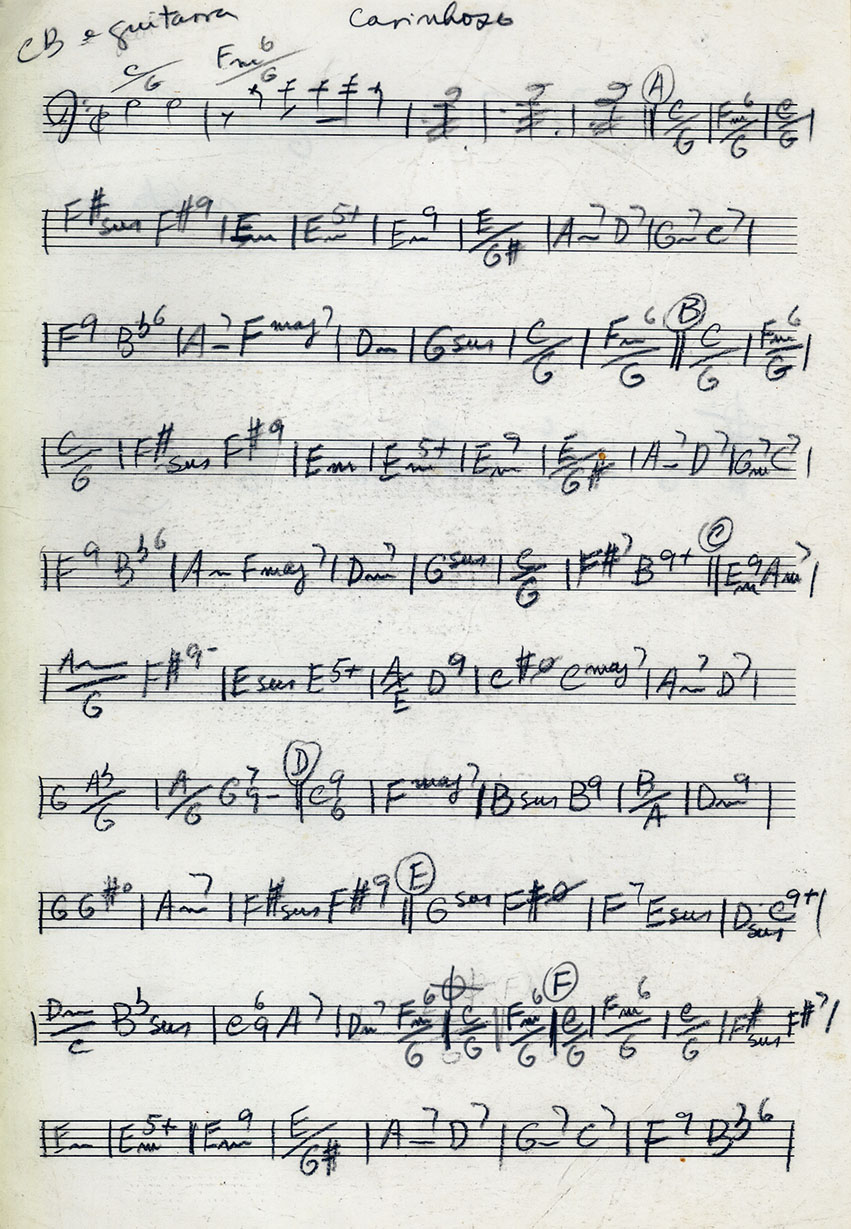 CB e guitarra Carinhoso
C/G Fm6/G 2 2 2 A C/G | Fm6/G | C/G |
F#sus F#9 | Em | Em5+ | Em9 | E/G# | Am7 D7 | Gm7 C7 |
F9 Bb6 | Am7 Fmaj7 | Dm | Gsus | C/G | Fm6/G || B C/G | Fm6/G |
C/G | F#sus F#9 | Em | Em5+ | Em9 | E/G# | Am7 D7 | Gm7 C7 |
F9 Bb6 | Am Fmaj7 | Dm7 | Gsus | C/G | F#7 B9+ || C Em9 Am7 |
Am/G F#9- | Esus E5+ | A/E D9 | C#ø Cmaj7 | Am7 D7 |
G Ab/G | A/G G7 9- || D C9 6 | Fmaj7 | Bsus B9 | B/A | Dm9 |
G G#o | Am7 | F#sus F#9 || E Gsus F#ø | F7 Esus | Dsus C9+ |
Dm/C Bbsus | C6 9 A7 | Dm7 Fm6/G | C/G | Fm6/G || F C/G | Fm6/G | C/G | F#sus F#7 |
Em | Em5+ | Em9 | E/G# | Am7 D7 | Gm7 C7 | F9 Bb6 |